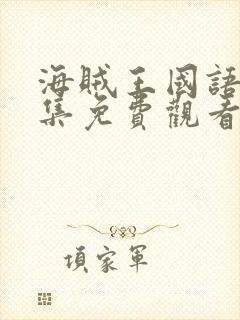 海賊王國語
集免費觀看
項家軍